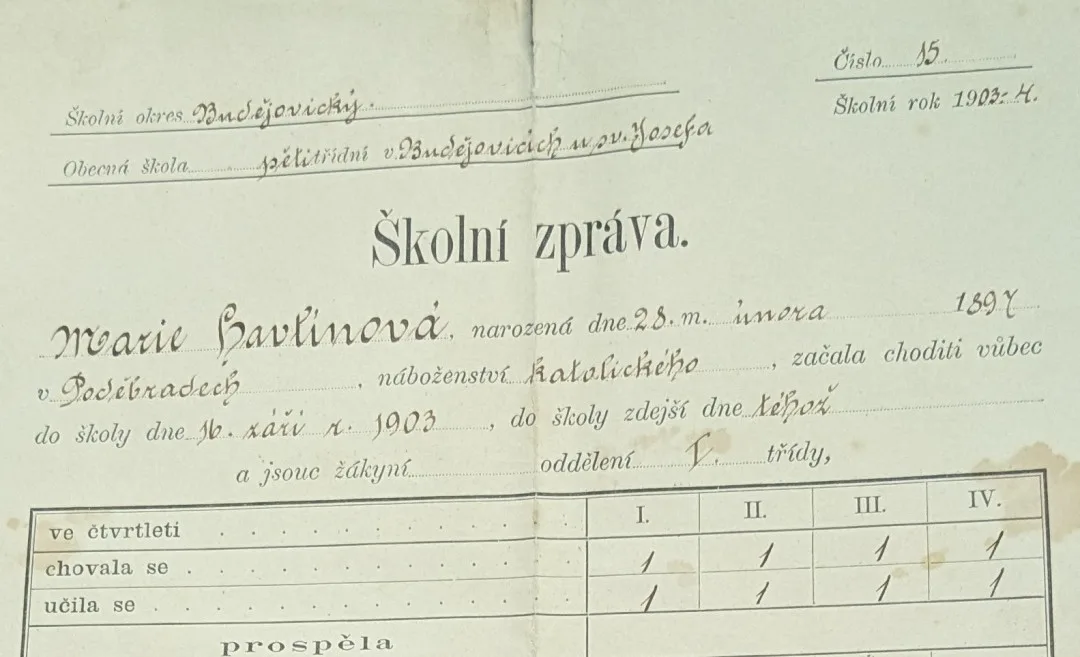 Číslo 15
Školní okres Budějovický.
Školní rok 1903-4.
Obecná škola pětitřídní v Budějovicích u sv. Josefa
Školní zpráva.
Marie Havlínová, narozená dne 28. m. února 1897
v Poděbradech, náboženství katolického, začala choditi vůbec
do školy dne 16. září r. 1903, do školy zdejší dne téhož
a jsouc žákyní oddělení I. třídy,
ve čtvrtleti I. II. III. IV.
chovala se 1 1 1 1
učila se 1 1 1 1
prospěla